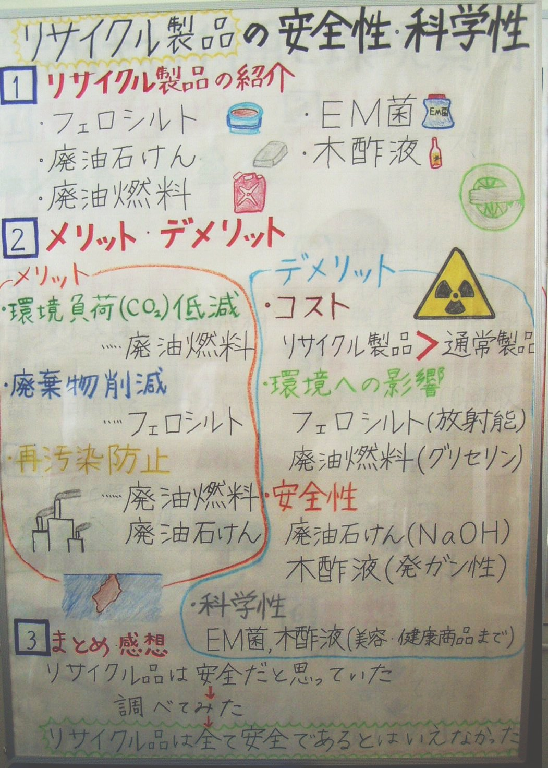 リサイクル製品の安全性・科学性
1 リサイクル製品の紹介
・フェロシルト
・EM菌
EM菌
・廃油石けん
・木酢液
・廃油燃料
2 メリット・デメリット
メリット
・環境負荷(CO₂)低減
……廃油燃料
・廃棄物削減
……フェロシルト
・再汚染防止
……廃油燃料
廃油石けん
デメリット
・コスト
リサイクル製品>通常製品
・環境への影響
フェロシルト(放射能)
廃油燃料(グリセリン)
・安全性
廃油石けん(NaOH)
木酢液(発ガン性)
・科学性
EM菌,木酢液(美容・健康商品まで)
3 まとめ 感想
リサイクル品は安全だと思っていた
↓
調べてみた
↓
リサイクル品は全て安全であるとはいえなかった